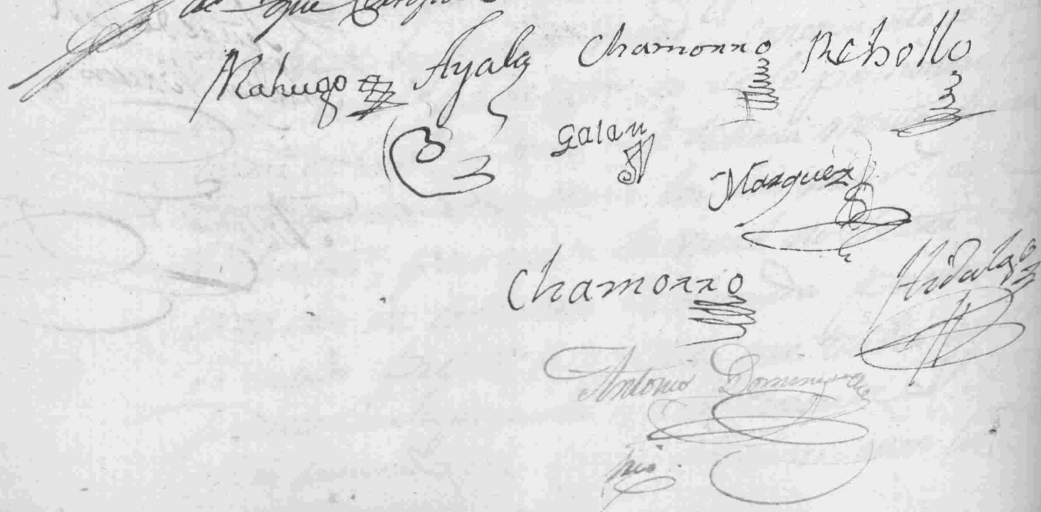 de que
Ayala Chamorro Rebollo
Galan
Marquez
Chamorro Hidalgo
Antonio Dominguez